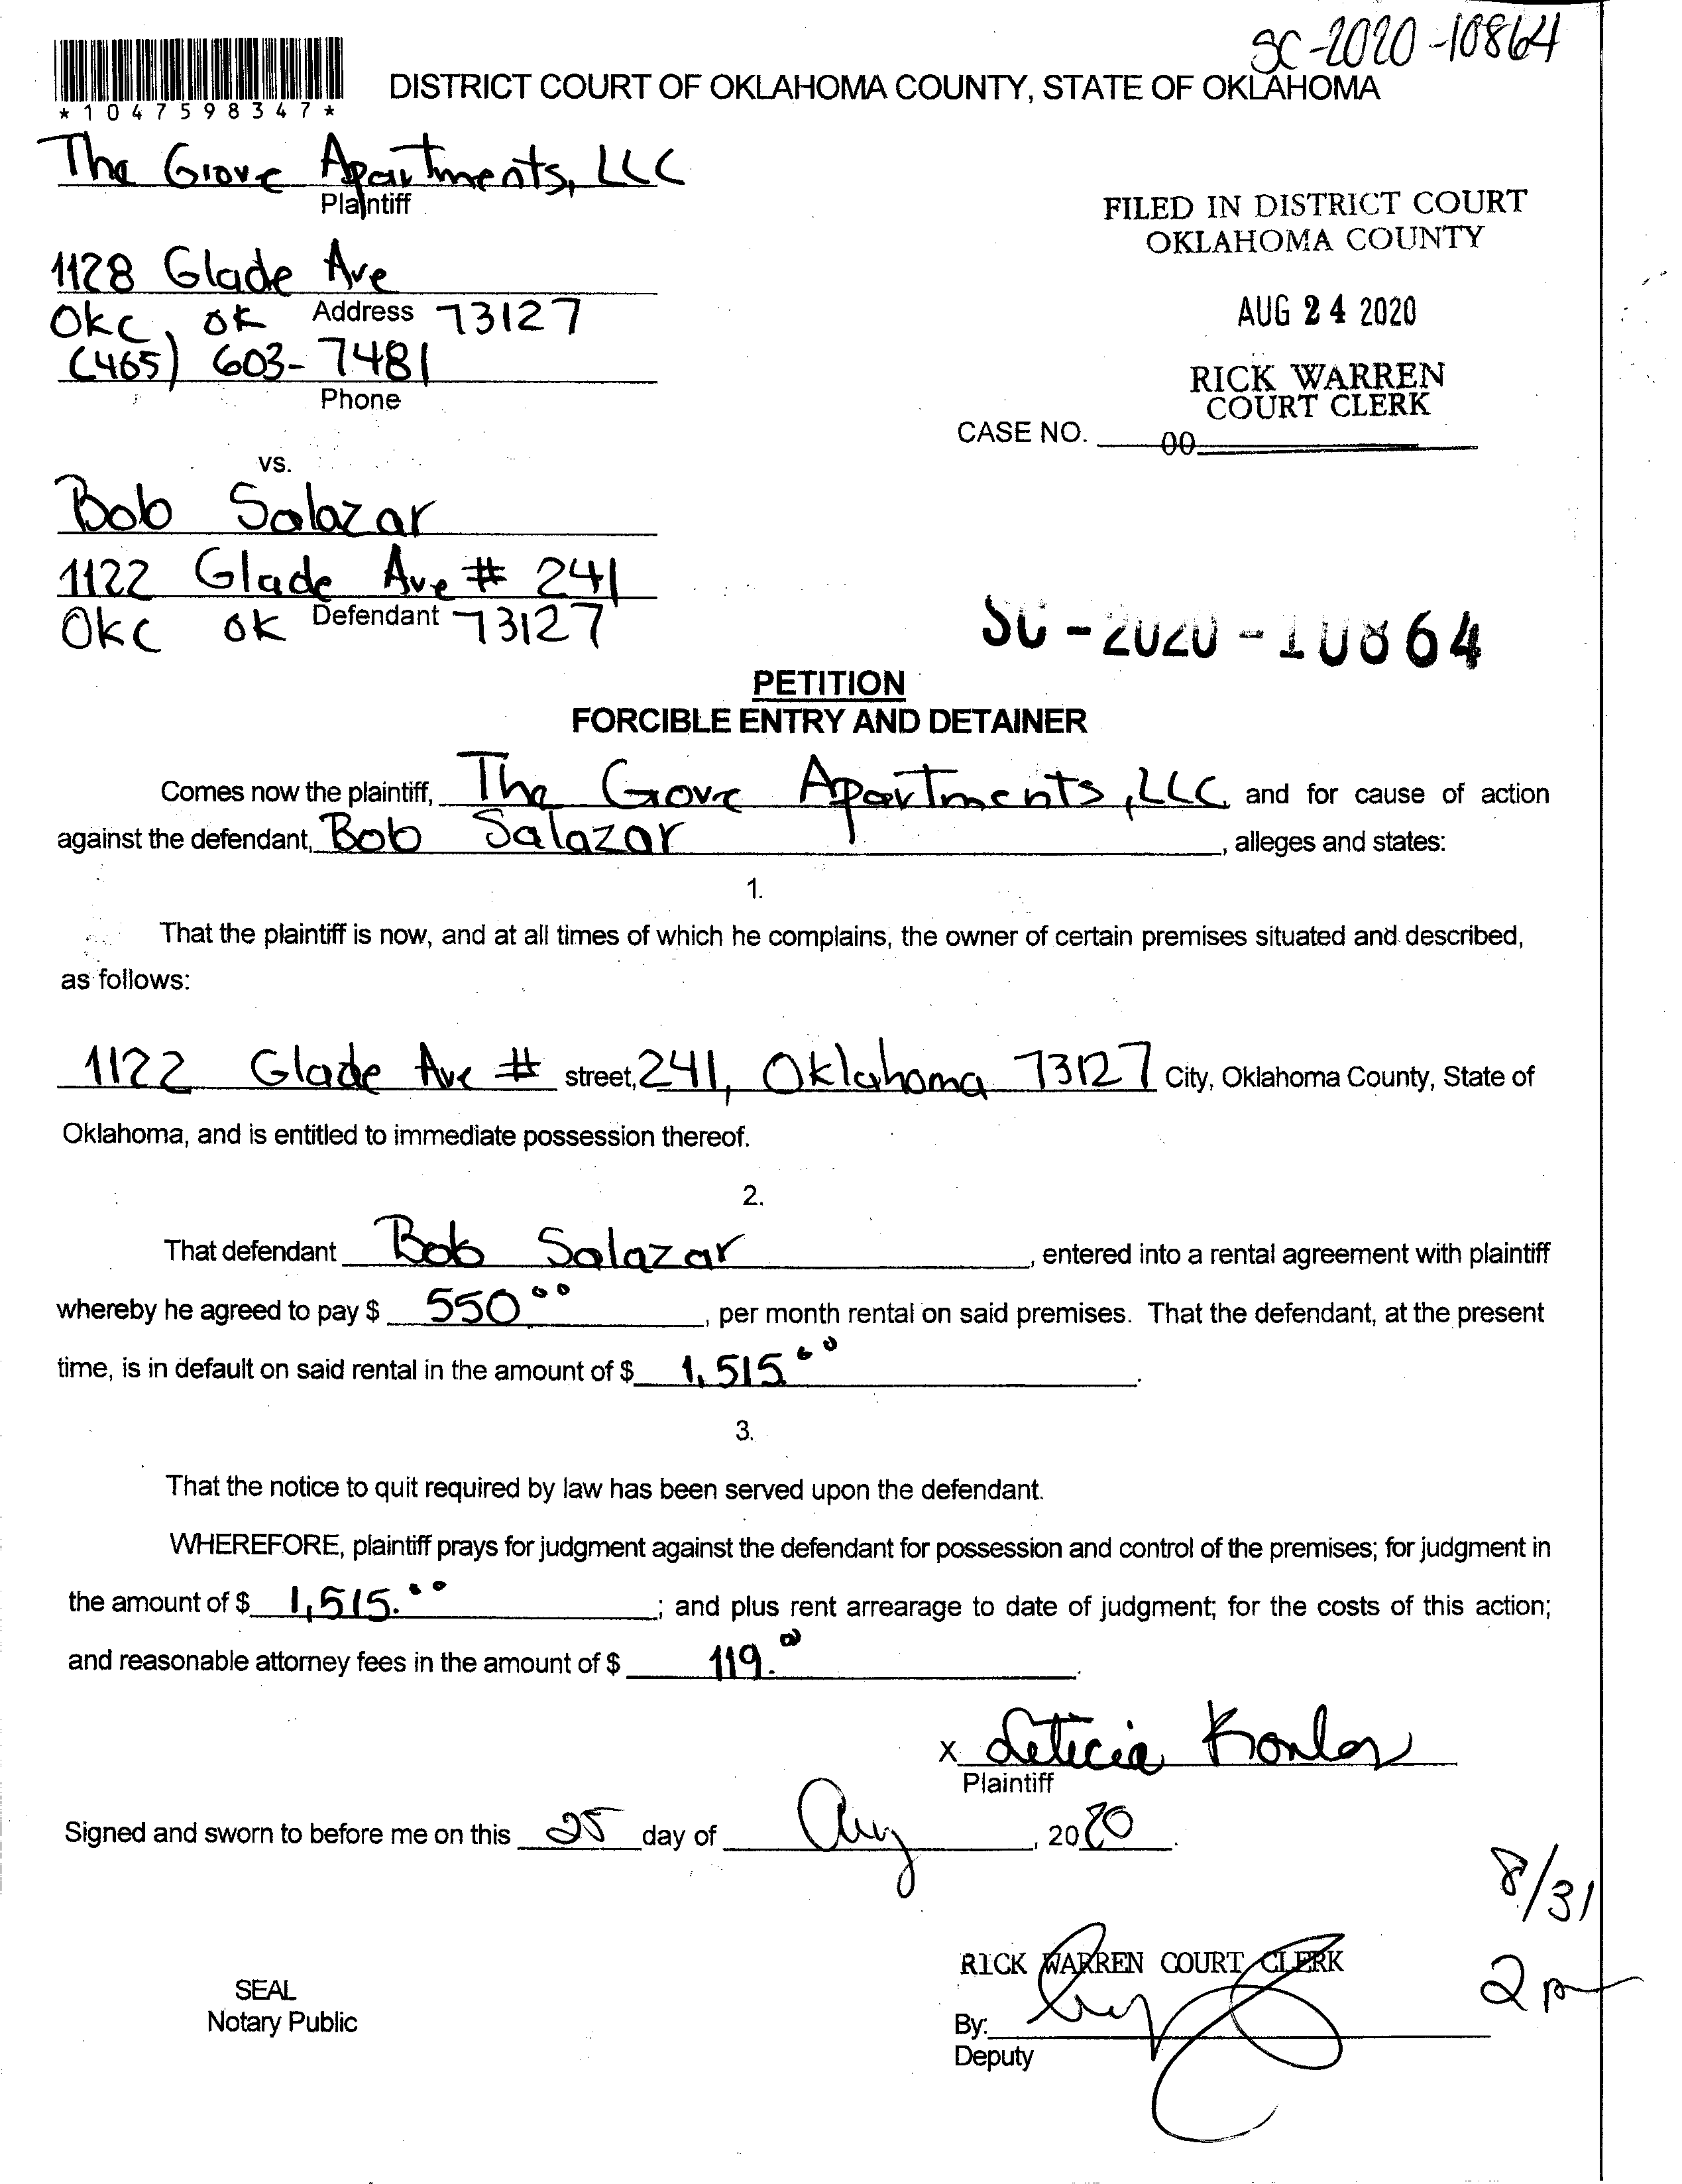 SC-2020-10864
DISTRICT COURT OF OKLAHOMA COUNTY, STATE OF OKLAHOMA
*1047598347*
The Grove Apartments, LLC
Plaintiff
FILED IN DISTRICT COURT
OKLAHOMA COUNTY
1128 Glade Ave
Address
OKC, OK 73127
AUG 24 2020
(465) 603-7481
Phone
RICK WARREN
COURT CLERK
CASE NO. 00
vs.
Bob Salazar
1122 Glade Ave # 241
Defendant
OKC OK 73127
SC-2020-10864
PETITION
FORCIBLE ENTRY AND DETAINER
Comes now the plaintiff, The Grove Apartments, LLC, and for cause of action
against the defendant, Bob Salazar, alleges and states:
1.
That the plaintiff is now, and at all times of which he complains, the owner of certain premises situated and described,
as follows:
1122 Glade Ave # street, 241, Oklahoma 73127 City, Oklahoma County, State of
Oklahoma, and is entitled to immediate possession thereof.
2.
That defendant Bob Salazar, entered into a rental agreement with plaintiff
whereby he agreed to pay $ 550 00, per month rental on said premises. That the defendant, at the present
time, is in default on said rental in the amount of $ 1,515 00.
3.
That the notice to quit required by law has been served upon the defendant.
WHEREFORE, plaintiff prays for judgment against the defendant for possession and control of the premises; for judgment in
the amount of $ 1,515.00; and plus rent arrearage to date of judgment; for the costs of this action;
and reasonable attorney fees in the amount of $ 119.00.
X Leticia
Plaintiff
Signed and sworn to before me on this 25 day of Aug, 2020.
8/31
2p
RICK WARREN COURT CLERK
SEAL
Notary Public
By:
Deputy